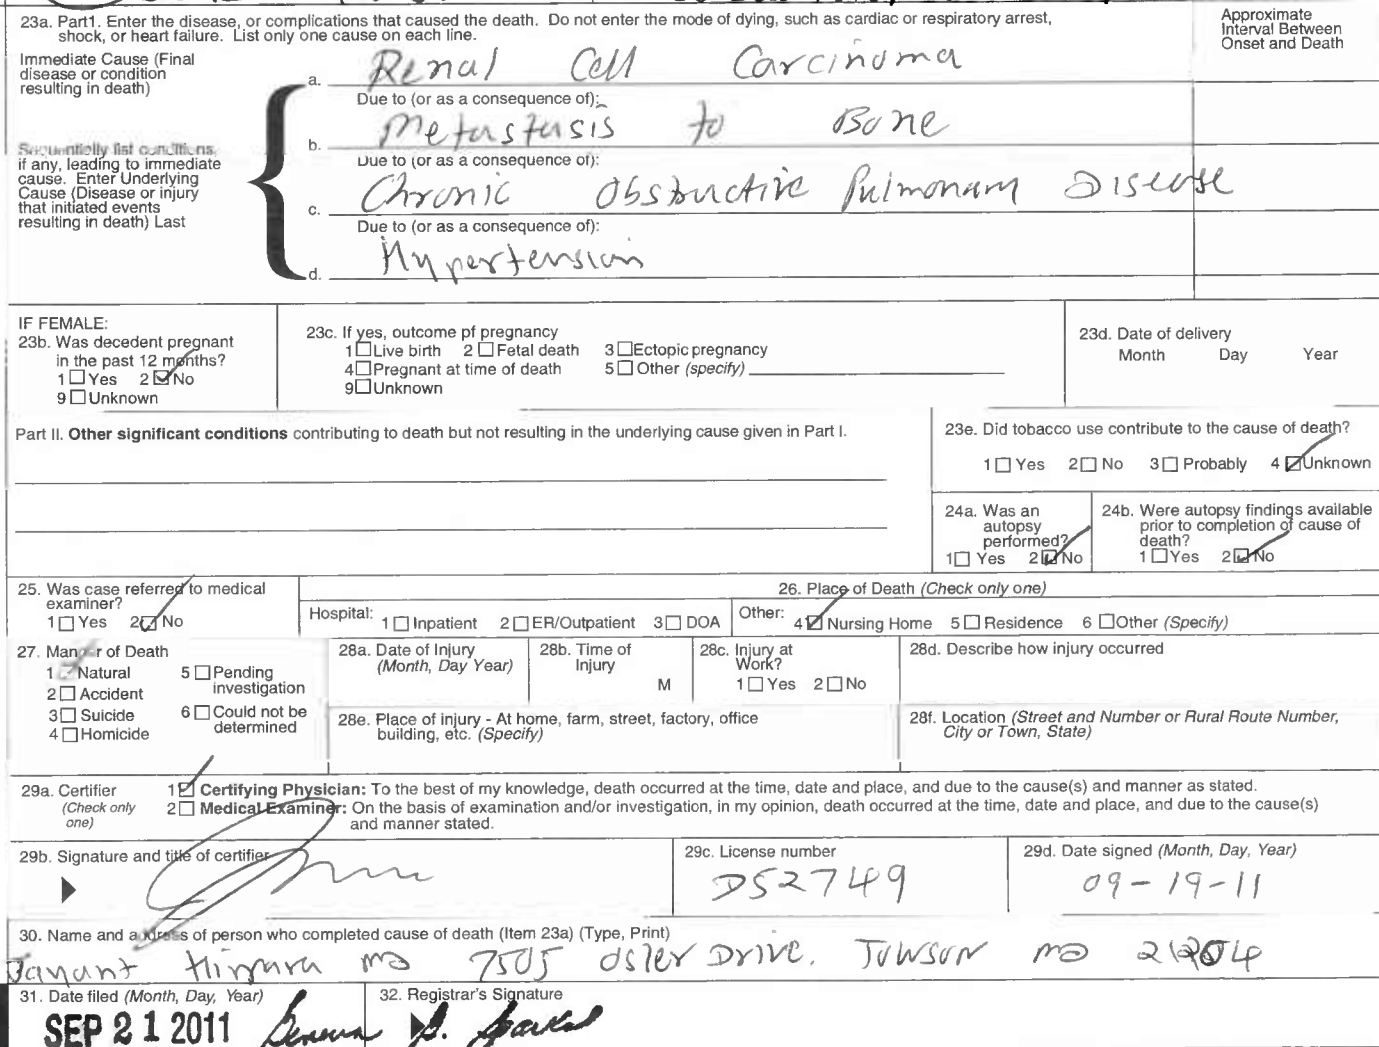 23a. Part1. Enter the disease, or complications that caused the death. Do not enter the mode of dying, such as cardiac or respiratory arrest,
shock, or heart failure. List only one cause on each line.
Approximate
Interval Between
Onset and Death
Immediate Cause (Final
disease or condition
resulting in death)
a. Renal Cell Carcinoma
Due to (or as a consequence of):
b. Metastasis to Bone
Sequentially list conditions,
if any, leading to immediate
cause. Enter Underlying
Cause (Disease or injury
that initiated events
resulting in death) Last
Due to (or as a consequence of):
c. Chronic Obstructive Pulmonary Disease
Due to (or as a consequence of):
d. Hypertension
IF FEMALE:
23b. Was decedent pregnant
in the past 12 months?
1 ☐ Yes 2 ☑ No
9 ☐ Unknown
23c. If yes, outcome pf pregnancy
1 ☐ Live birth 2 ☐ Fetal death 3 ☐ Ectopic pregnancy
4 ☐ Pregnant at time of death 5 ☐ Other (specify)
9 ☐ Unknown
23d. Date of delivery
Month Day Year
Part II. Other significant conditions contributing to death but not resulting in the underlying cause given in Part I.
23e. Did tobacco use contribute to the cause of death?
1 ☐ Yes 2 ☐ No 3 ☐ Probably 4 ☑ Unknown
24a. Was an
autopsy
performed?
1 ☐ Yes 2 ☑ No
24b. Were autopsy findings available
prior to completion of cause of
death?
1 ☐ Yes 2 ☑ No
25. Was case referred to medical
examiner?
1 ☐ Yes 2 ☑ No
26. Place of Death (Check only one)
Hospital: 1 ☐ Inpatient 2 ☐ ER/Outpatient 3 ☐ DOA Other: 4 ☑ Nursing Home 5 ☐ Residence 6 ☐ Other (Specify)
27. Manner of Death
1 ☑ Natural
2 ☐ Accident
3 ☐ Suicide
4 ☐ Homicide
5 ☐ Pending
investigation
6 ☐ Could not be
determined
28a. Date of Injury
(Month, Day Year)
28b. Time of
Injury
M
28c. Injury at
Work?
1 ☐ Yes 2 ☐ No
28d. Describe how injury occurred
28e. Place of injury - At home, farm, street, factory, office
building, etc. (Specify)
28f. Location (Street and Number or Rural Route Number,
City or Town, State)
29a. Certifier
(Check only
one)
1 ☑ Certifying Physician: To the best of my knowledge, death occurred at the time, date and place, and due to the cause(s) and manner as stated.
2 ☐ Medical Examiner: On the basis of examination and/or investigation, in my opinion, death occurred at the time, date and place, and due to the cause(s)
and manner stated.
29b. Signature and title of certifier
29c. License number
D52749
29d. Date signed (Month, Day, Year)
09-19-11
30. Name and address of person who completed cause of death (Item 23a) (Type, Print)
Jayant MD 7505 Osler Drive. Towson MD 21204
31. Date filed (Month, Day, Year)
SEP 21 2011
32. Registrar's Signature